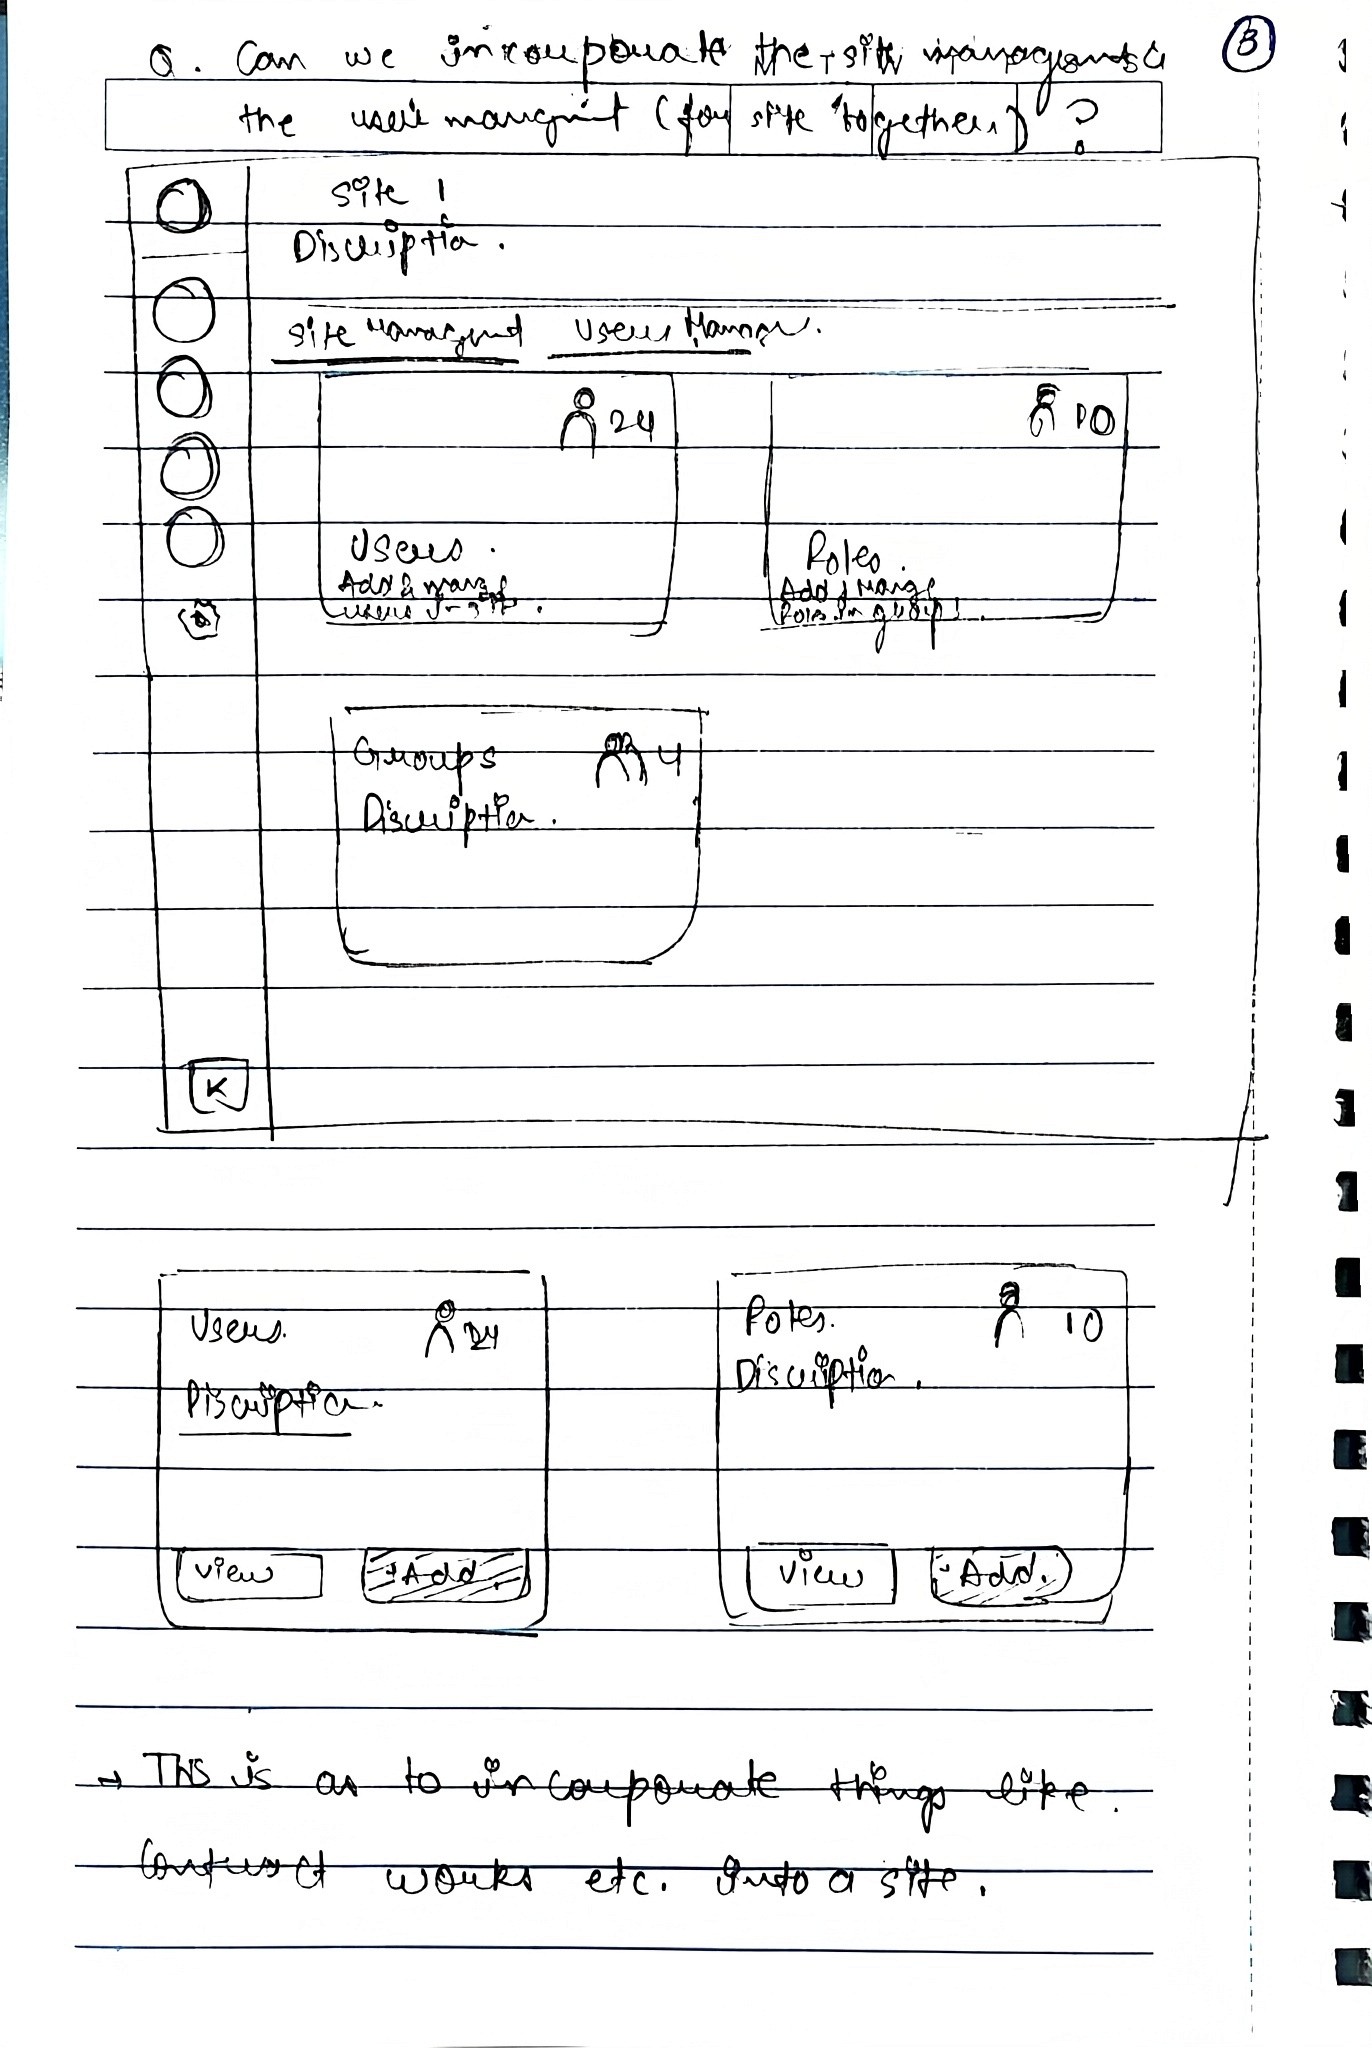 Q. Can we incorporate the site managment &
the user managmnt (for site together) ?
3
Site 1
Discription.
Site Managmnt Users Manag.
24
10
Users.
Add & manage
users in site.
Roles.
Add & Manage
Roles in group.
Groups 4
Discription.
K
Users. 24
Discription.
View +Add.
Roles. 10
Discription.
View +Add.
→ This is as to incorporate things like
Contract works etc. Into a site.